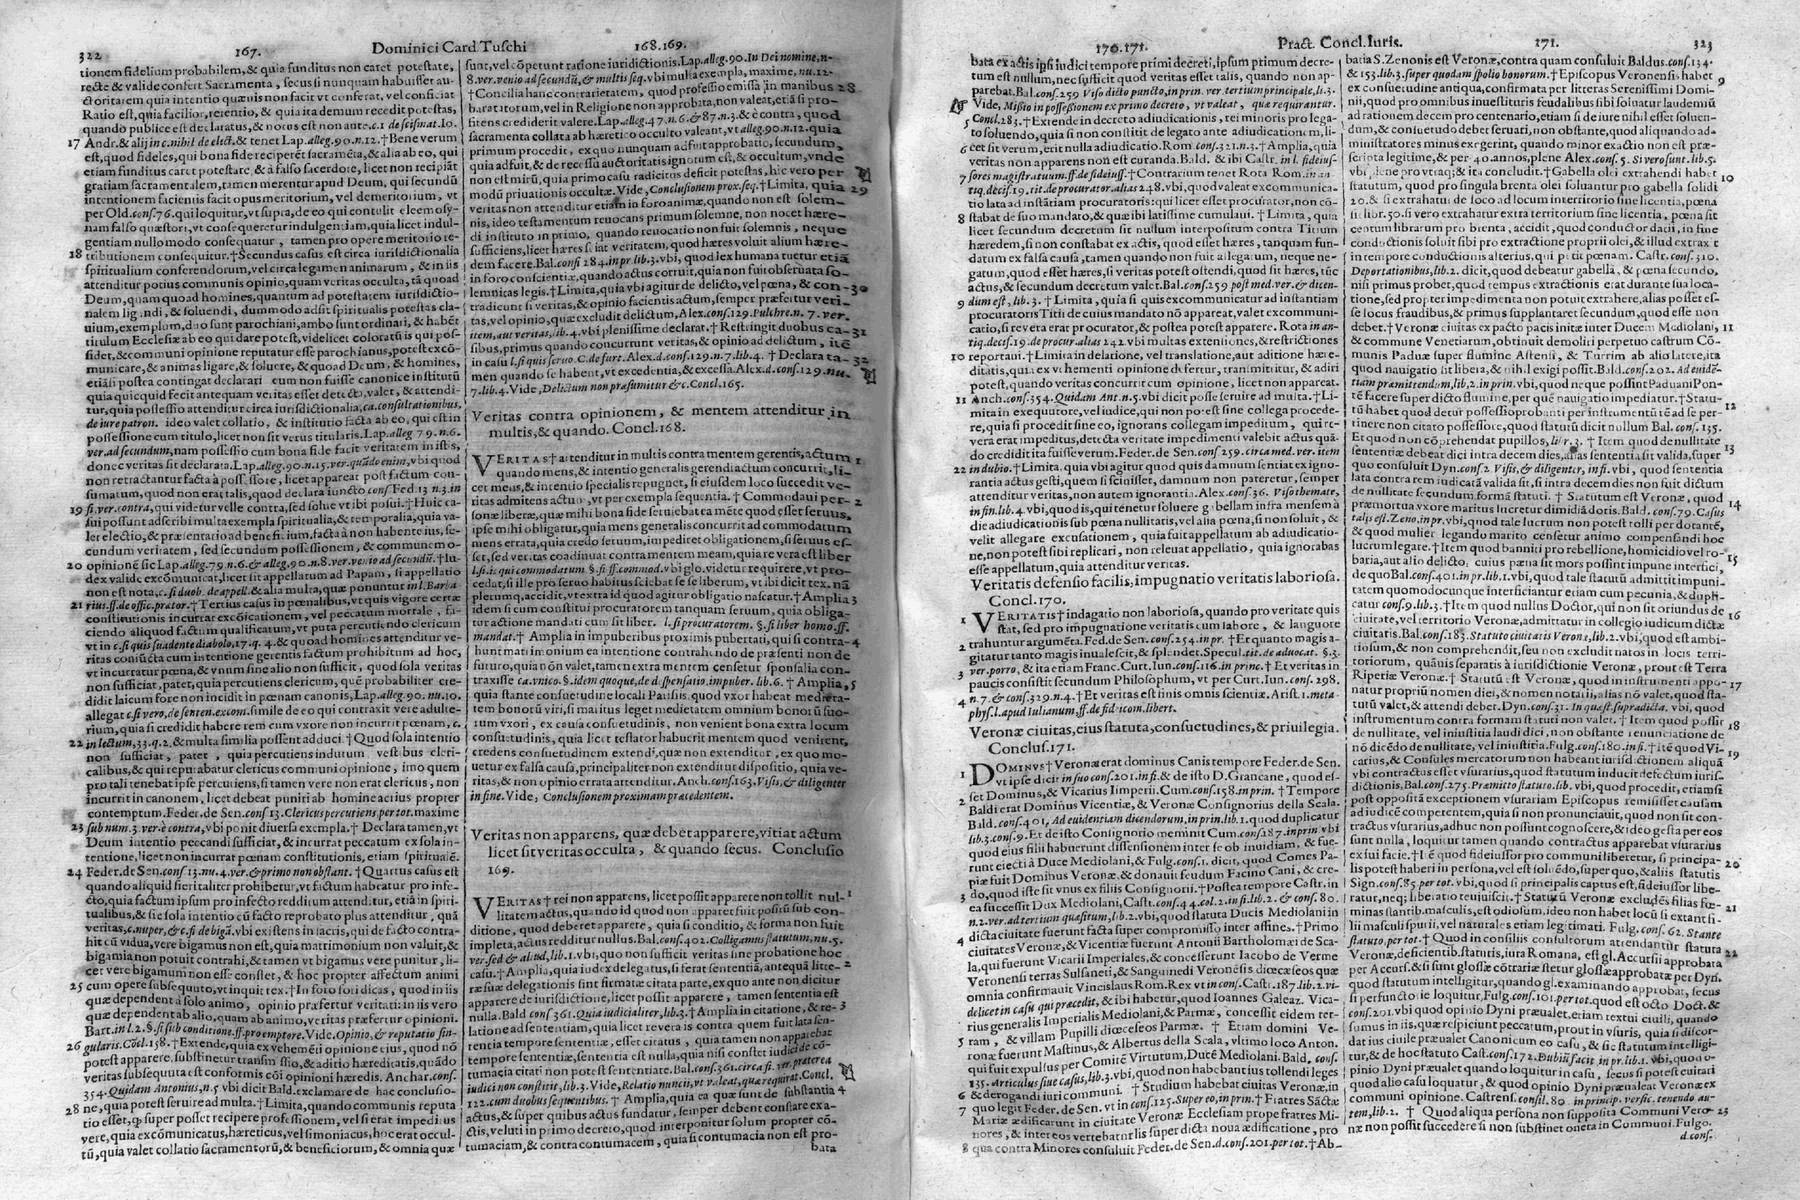 322 167. Dominici Card. Tuschi 168.169.
tionem fidelium probabilem, & quia funditus non caret potestate,
recte & valide confert Sacramenta, secus si nunquam habuisset au-
ctoritatem quia intentio quæuis non facit vt conferat, vel conficiat
Ratio est, quia facilior, retentio, & quia
quando publice est declaratus, & notus est non ante. c. 1 de scismat. Io.
17 Andr. & alij in c. nihil de elect. & tenet Lap. alleg. 90. n. 12. † Bene verum
est, quod fideles, qui bona fide reciperēt sacramēta, & alia ab eo, qui
etiam funditus caret potestate, & à falso sacerdote, licet non recipiāt
gratiam sacramentalem, tamen merentur apud Deum, qui secundū
intentionem facientis facit opus meritorium, vel demeritorium, vt
per Old. cons. 76. qui loquitur, vt supra, de eo qui contulit eleemosy-
nam falso quæstori, vt consequeretur indulgentiam, quia licet indul-
gentiam nullo modo consequatur, tamen pro opere meritorio re-
18 tributionem consequitur. † Secundus casus est circa iurisdictionalia
spiritualium conferendorum, vel circa legamen animarum, & in iis
attenditur potius communis opinio, quam veritas occulta, tā quoad
Deum, quam quoad homines, quantum ad potestatem iurisdictio-
nalem ligandi, & soluendi, dummodo adsit spiritualis potestas cla-
uium, exemplum, duo sunt parochiani, ambo sunt ordinari, & habēt
titulum Ecclesiæ ab eo qui dare potest, videlicet coloratū is qui pos-
sidet, & communi opinione reputatur esse parochianus, potest excō-
municare, & animas ligare, & soluere, & quoad Deum, & homines,
etiāsi postea contingat declarari eum non fuisse canonice institutū
quia quicquid fecit antequam veritas esset detectā, valet, & attendi-
tur, quia possessio attenditur circa iurisdictionalia, ca. consultationibus,
de iure patron. ideo valet collatio, & institutio facta ab eo, qui est in
possessione cum titulo, licet non sit verus titularis. Lap. alleg 79. n. 6.
ver. ad secundum, nam possessio cum bona fide facit veritatem in istis,
donec veritas sit declarata. Lap. alleg. 90. n. 15. ver. quādo enim, vbi quod
non retractantur facta à possessore, licet appareat post factum con-
sumatum, quod non erat talis, quod declara iuncto cons. Fed. 13 n. 3. in
19 fi. ver. contra, qui videtur velle contra, sed solue vt ibi posui. † Huic ca-
sui possunt adscribi multa exempla spiritualia, & temporalia, quia va-
let electio, & præsentatio ad beneficium, facta à non habente ius, se-
cundum veritatem, sed secundum possessionem, & communem o-
20 opinionē sic Lap. alleg. 79. n. 6. & alleg. 90. n. 8. ver. venio ad secundū. † Iu-
dex valide excōmunicat, licet sit appellatum ad Papam, si appellatio
non est nota, c. si duob. de appell. & alia multa, quæ ponuntur in l. Barba
21 rius. ff. de offic. prætor. † Tertius casus in pœnalibus, vt quis vigore certæ
constitutionis incurrat excōicationem, vel peccatum mortale, fa-
ciendo aliquod factum qualificatum, vt puta percutiendo clericum
vt in c. si quis suadente diabolo, 17. q. 4. & quoad homines attenditur ve-
ritas coniūcta cum intentione gerentis factum prohibitum ad hoc,
vt incurratur pœna, & vnum sine alio non sufficit, quod sola veritas
non sufficiat, patet, quia percutiens clericum, quē probabiliter cre-
didit laicum fore non incidit in pœnam canonis, Lap. alleg. 90. nu. 10.
allegat c. si vero, de senten. excom. simile de eo qui contraxit vere adulte-
rium, quia si credidit habere rem cum vxore non incurrit pœnam, c.
22 in lectum, 33. q. 2. & multa similia possent adduci. † Quod sola intentio
non sufficiat, patet, quia percutiens indutum vestibus cleri-
calibus, & qui reputabatur clericus communi opinione, imo quem
pro tali tenebat ipse percutiens, si tamen vere non erat clericus, non
incurrit in canonem, licet debeat puniri ab homine acrius propter
contemptum. Feder. de Sen. cons 13. Clericus percutiens per tot. maxime
23 sub num. 3. ver. è contra, vbi ponit diuersa exempla. † Declara tamen, vt
Deum intentio peccandi sufficiat, & incurrat peccatum ex sola in-
tentione, licet non incurrat pœnam constitutionis, etiam spiritualē.
24 Feder. de Sen. cons. 13. nu. 4. ver. & primo non obstant. † Quartus casus est
quando aliquid fieri taliter prohibetur, vt factum habeatur pro infe-
cto, quia factum ipsum pro infecto redditum attenditur, etiā in spiri-
tualibus, & sic sola intentio cū facto reprobato plus attenditur, quā
veritas, c. nuper, & c. si de bigā. vbi existens in sacris, qui de facto contra-
hit cū vidua, vere bigamus non est, quia matrimonium non valuit, &
bigamia non potuit contrahi, & tamen vt bigamus vere punitur, li-
cet vere bigamum non esse constet, & hoc propter affectum animi
25 cum opere subsequuto, vt inquit tex. † In foro fori dicas, quod in iis
quæ dependent à solo animo, opinio præfertur veritati: in iis vero
quæ dependent ab alio, quam ab animo, veritas præfertur opinioni.
Bart. in l. 2. §. si sub conditione. ff. pro emptore. Vide, Opinio, & reputatio sin-
26 gularis. Cōcl. 158. † Extende, quia ex vehemēti opinione eius, quod nō
potest apparere, substinetur transmissio, & aditio hæreditatis, quādo
veritas subsequuta est conformis cōi opinioni hæredis. Anchar. cons.
354. Quidam Antonius, n. 5 vbi dicit Bald. exclamare de hac conclusio-
28 ne, quia potest seruire ad multa. † Limita, quando communis reputa
tio esset, q̄ super posset recipere professionem, vel si erat impeditus
vere, quia excōmunicatus, hæreticus, vel simoniacus, hoc erat occul-
tū, quia valet collatio sacramentorū, & beneficiorum, & omnia quæ
sunt, vel cōpetunt ratione iurisdictionis. Lap. alleg. 90. In Dei nomine, n-
8. ver. venio ad secundū, & multis seq. vbi multa exempla, maxime, nu. 12-
† Concilia hanc contrarietatem, quod professio emissa in manibus 28
baratitorum, vel in Religione non approbata, non valeat, etiā si pro-
fitens crediderit valere. Lap. alleg. 47. n. 6. & 87. n. 3. & è contra, quod
sacramenta collata ab hæretico occulto valeant, vt alleg. 90. n. 12. quia
primum procedit, ex quo nunquam adfuit approbatio, secundum,
quia adfuit, & de recessu auctoritatis ignotum est, & occultum, vnde
non est mirū, quia primo casu radicitus deficit potestas, hic vero per
modū priuationis occultæ. Vide, Conclusionem prox. seq. † Limita, quia 29
veritas non attenditur etiam in foro animæ, quando non est solem-
nis, ideo testamentum reuocans primum solemne, non nocet hære-
di instituto in primo, quando reuocatio non fuit solemnis, neque
sufficiens, licet hæres sciat veritatem, quod hæres voluit alium hære-
dem facere. Bal. consi 284. in pr. lib. 3. vbi, quod lex humana tuetur etiā
in foro conscientiæ, quando actus corruit, quia non fuit obseruata so-
lemnitas legis. † Limita, quia vbi agitur de delicto, vel pœna, & con- 30
tradicunt si veritas, & opinio facientis actum, semper præfertur veri-
tas, vel opinio, quæ excludit delictum, Alex. cons. 129. Pulchre. n. 7. ver.
item, aut veritas, lib. 4. vbi plenissime declarat. † Restringit duobus ca- 31
sibus, primus quando concurrunt veritas, & opinio ad delictum, itē
in casu l. si quis seruo C. de furt. Alex. d. cons. 129. n. 7. lib. 4. † Declara ta- 32
men quando se habent, vt excedentia, & excessa. Alex. d. cons. 129. nu.
7. lib. 4. Vide, Delictum non præsumitur &c. Concl. 165.
Veritas contra opinionem, & mentem attenditur in
multis, & quando. Concl. 168.
VERITAS † attenditur in multis contra mentem gerentis, actum 1
quando mens, & intentio generalis gerendi actum concurrit, li-
cet mens, & intentio specialis repugnet, si eiusdem loco succedit ve-
ritas admitens actum, vt per exempla sequentia. † Commodaui per- 2
sonæ liberæ, quæ mihi bona fide seruiebat ea mēte quod esset seruus,
ipse mihi obligatur, quia mens generalis concurrit ad commodatum
mens errata, quia credo seruum, impediret obligationem, si seruus es-
set, sed veritas coadiuuat contra mentem meam, quia re vera est liber
l. si. is qui commodatum §. si ff. commod. vbi glo. videtur requirere, vt pro-
cedat, si ille pro seruo habitus sciebat se se liberum, vt ibi dicit tex. nā
plerumq; accidit, vt extra id quod agitur obligatio nascatur. † Amplia 3
idem si cum constitui procuratorem tanquam seruum, quia obliga-
tur actione mandati cum sit liber. l. si procuratorem. §. si liber homo. ff.
mandat. † Amplia in impuberibus proximis pubertati, qui si contra- 4
hunt matrimonium ea intentione contrahendo de præsenti non de
futuro, quia nōn valet, tamen extra mentem censetur sponsalia con-
traxisse ca. vnico. §. idem quoque, de despensatio. impuber. lib. 6. † Amplia, 5
quia stante consuetudine locali Parisiis quod vxor habeat medieta-
tem bonorū viri, si maritus leget medietatem omnium bonorū suo-
rum vxori, ex causa consuetudinis, non venient bona extra locum
consuetudinis, quia licet testator habuerit mentem quod venirent,
credens consuetudinem extendi, quæ non extenditur, ex quo mo-
uetur ex falsa causa, principaliter non extenditur dispositio, quia ve-
ritas, & non opinio errata attenditur. Anch. cons. 163. Visis, & diligenter
in fine. Vide, Conclusionem proximam præcedentem.
Veritas non apparens, quæ debet apparere, vitiat actum
licet sit veritas occulta, & quando secus. Conclusio
169.
VERITAS † rei non apparens, licet possit apparere non tollit nul- 1
litatem actus, quando id quod non apparet fuit positū sub con-
ditione, quod deberet apparere, quia si conditio, & forma non fuit
impleta, actus redditur nullus. Bal. cons. 402. Colligamus statutum, nu. 5.
ver. sed & aliud, lib. 1. vbi, quo non sufficit veritas sine probatione hoc
casu. † Amplia, quia iudex delegatus, si ferat sententiā, antequā litte- 2
ræ suæ delegationis sint firmatæ citata parte, ex quo ante non dicitur
apparere de iurisdictione, licet possit apparere, tamen sententia est
nulla. Bald cons 361. Quia iudicialiter, lib. 3. † Amplia in citatione, & re- 3
latione ad sententiam, quia licet reuera is contra quem fuit lata sen-
tentia tempore sententiæ, esset citatus, quia tamen non apparebat
tempore sententiæ, sententia est nulla, quia nisi constet iudici de cō-
tumacia citati non potest sententiare. Bal. cons. 361. circa fi. ver. præterea
iudici non constitit, lib. 3. Vide, Relatio nuncii, vt valeat, quæ requirat. Concl.
122. cum duobus sequentibus. † Amplia, quia ea quæ sunt de substantia 4
actus, & super quibus actus fundatur, semper debent constare ex a-
ctis, veluti in primo decreto, quod interponitur solum propter cō-
tumaciam, & contra contumacem, quia si contumacia non est pro-
bata
170.171. Pract. Concl. Iuris. 171. 323
bata ex actis ipsi iudici tempore primi decreti, ipsum primum decre-
tum est nullum, nec sufficit quod veritas esset talis, quando non ap-
parebat. Bal. cons. 259 Viso dicto puncto, in prin. ver. tertium principale, li. 3.
Vide, Missio in possessionem ex primo decreto, vt valeat, quæ requirantur.
5 Concl. 283. † Extende in decreto adiudicationis, rei minoris pro lega-
to soluendo, quia si non constitit de legato ante adiudicationem, li-
6 cet sit verum, erit nulla adiudicatio. Rom. cons. 321. n. 3. † Amplia, quia
veritas non apparens non est curanda. Bald. & ibi Castr. in l. si fideius-
7 sores magistratuum. ff. de fideiuss. † Contrarium tenet Rota Rom. in an-
tiq. decis. 19. tit. de procurator. alias 248. vbi, quod valeat excommunica-
tio lata ad instātiam procuratoris: qui licet esset procurator, non cō-
8 stabat de suo mandato, & quæ ibi latissime cumulaui. † Limita, quia
licet secundum decretum sit nullum interpositum contra Titium
hæredem, si non constabat ex actis, quod esset hæres, tanquam fun-
datum ex falsa causa, tamen quando non fuit allegatum, neque ne-
gatum, quod esset hæres, si veritas potest ostendi, quod sit hæres, tūc
actus, & secundum decretum valet. Bal. cons. 259 post med. ver. & dicen-
9 dum est, lib. 3. † Limita, quia si quis excommunicatur ad instantiam
procuratoris Titii de cuius mandato nō appareat, valet excommuni-
catio, si reuera erat procurator, & postea potest apparere. Rota in an-
tiq. decis. 19. de procur. alias 242. vbi multas extensiones, & restrictiones
10 reportaui. † Limita in delatione, vel translatione, aut aditione hære-
ditatis, quia ex vehementi opinione defertur, transmittitur, & adiri
potest, quando veritas concurrit cum opinione, licet non appareat.
11 Anch. cons. 354. Quidam Ant. n. 5. vbi dicit posse seruire ad multa. † Li-
mita in exequutore, vel iudice, qui non potest sine collega procede-
re, quia si procedit sine eo, ignorans collegam impeditum, qui re-
vera erat impeditus, detecta veritate impedimenti valebit actus quā-
do credidit ita fuisse verum. Feder. de Sen. cons. 259. circa med. ver. item
12 in dubio. † Limita, quia vbi agitur quod quis damnum sentiat ex igno-
rantia actus gesti, quem si sciuisset, damnum non pateretur, semper
attenditur veritas, non autem ignorantia. Alex. cons. 36. Viso themate,
in fin. lib. 4. vbi, quod is, qui tenetur soluere gabellam infra mensem à
die adiudicationis sub pœna nullitatis, vel alia pœna, si non soluit, &
velit allegare excusationem, quia fuit appellatum ab adiudicatio-
ne, non potest sibi replicari, non releuat appellatio, quia ignorabas
esse appellatum, quia attenditur veritas.
Veritatis defensio facilis, impugnatio veritatis laboriosa.
Concl. 170.
1 VERITATIS † indagatio non laboriosa, quando pro veritate quis
stat, sed pro impugnatione veritatis cum labore, & languore
2 trahuntur argumēta. Fed. de Sen. cons. 254. in pr. † Et quanto magis a-
gitatur tanto magis inualescit, & splendet. Specul. tit. de aduocat. §. 3.
3 ver. porro, & ita etiam Franc. Curt. Iun. cons. 116. in princ. † Et veritas in
paucis consistit secundum Philosophum, vt per Curt. Iun. cons. 298.
4 n. 7. & cons. 329. n. 4. † Et veritas est finis omnis scientiæ. Arist. 1. meta-
phys. l. apud Iulianum, ff. de fideicom. libert.
Veronæ ciuitas, eius statuta, consuetudines, & priuilegia.
Conclus. 171.
1 DOMINUS † Veronæ erat dominus Canis tempore Feder. de Sen.
vt ipse dicit in suo cons. 201. in fi. & de isto D. Grancane, quod es-
set Dominus, & Vicarius Imperii. Cum. cons. 158. in prin. † Tempore
2 Baldi erat Dominus Vicentiæ, & Veronæ Consignorius della Scala.
Bald. cons. 401. Ad euidentiam dicendorum, in prin. lib. 1. quod duplicatur
lib. 3. cons. 9. Et de isto Consignorio meminit Cum. cons. 187. in prin vbi
quod eius filii habuerunt dissensionem inter se ob inuidiam, & fue-
runt eiecti à Duce Mediolani, & Fulg. cons. 1. dicit, quod Comes Pa-
piæ fuit Dominus Veronæ, & donauit feudum Facino Cani, & cre-
3 do, quod iste sit vnus ex filiis Consignorii. † Postea tempore Castr. in
ea successit Dux Mediolani, Cast. cons. 44. col. 2. in fi. lib. 2. & cons. 80.
n. 2. ver. ad tertium quæsitum, lib. 2. vbi, quod statuta Ducis Mediolani in
dicta ciuitate fuerunt facta super compromisso inter affines. † Primo
4 ciuitates Veronæ, & Vicentiæ fuerunt Antonii Bartholomæi de Sca-
la, qui fuerunt Vicarii Imperiales, & concesserunt Iacobo de Verme
Veronensi terras Sulsaneti, & Sanguinedi Veronēsis diœcæseos quæ
omnia confirmauit Vincislaus Rom. Rex vt in cons. Castr. 187. lib. 2. vi-
delicet in casu qui præcedit, & ibi habetur, quod Ioannes Galeaz. Vica-
rius generalis Imperialis Mediolani, & Parmæ, concessit eidem ter-
5 ram, & villam Pupilli diœceseos Parmæ. † Etiam domini Ve-
ronæ fuerunt Mastinus, & Albertus della Scala, vltimo loco Anton.
qui fuit expulsus per Comitē Virtutum, Ducē Mediolani. Bald. cons.
135. Articulus siue casus, lib. 3. vbi, quod non habebant ius tollendi leges
6 & derogandi iuri communi † Studium habebat ciuitas Veronæ, in
quo legit Feder. de Sen. vt in cons. 125. Super eo, in prin. † Fratres Sāctæ
7 Mariæ ædificarunt in ciuitate Veronæ Ecclesiam prope fratres Mi-
nores, & inter eos vertebatur lis super dicta noua ædificatione, pro
8 qua contra Minores consuluit Feder. de Sen. d. cons. 201. per tot. † Ab-
batia S. Zenonis est Veronæ, contra quam consuluit Baldus. cons. 134.
& 153. lib. 3. super quodam spolio bonorum. † Episcopus Veronensis habet 9
ex consuetudine antiqua, confirmata per litteras Serenissimi Domi-
nii, quod pro omnibus inuestituris feudalibus sibi soluatur laudemiū
ad rationem decem pro centenario, etiam si de iure nihil esset soluen-
dum, & consuetudo debet seruari, non obstante, quod aliquando ad-
ministratores minus exegerint, quando minor exactio non est præ-
scripta legitime, & per 40. annos, plene Alex. cons. 5. Si vero sunt. lib. 5.
vbi, bene pro vtraq; & ita concludit. † Gabella olei extrahendi habet 10
statutum, quod pro singula brenta olei soluantur pro gabella solidi
20. & si extrahatur de loco ad locum in territorio sine licentia, pœna
sit libr. 50. si vero extrahatur extra territorium sine licentia, pœna sit
centum librarum pro brenta, accidit, quod conductor dacii, in fine
conductionis soluit sibi pro extractione proprii olei, & illud extraxit
in tempore conductionis alterius, qui petit pœnam. Castr. cons. 310.
Deportationibus, lib. 2. dicit, quod debeatur gabella, & pœna secundo,
nisi primus probet, quod tempus extractionis erat durante sua loca-
tione, sed propter impedimenta non potuit extrahere, alias posset es-
se locus fraudibus, & primus supplantaret secundum, quod esse non
debet. † Veronæ ciuitas ex pacto pacis initæ inter Ducem Mediolani, 11
& commune Venetiarum, obtinuit demoliri perpetuo castrum Cō-
munis Paduæ super flumine Astensi, & Turrim ab alio latere, ita
quod nauigatio sit libera, & nihil exigi possit. Bald. cons. 202. Ad euidē-
tiam præmittendum, lib. 2. in prin. vbi, quod neque possint Paduani Pon-
tē facere super dicto flumine, per quē nauigatio impediatur. † Statu-
tū habet quod detur possessio probanti per instrumentū tē ad se per- 12
tinere non citato possessore, quod statutū dicit nullum Bal. cons. 135.
Et quod non cōprehendat pupillos, lib. 3. † Item quod de nullitate
sententiæ debeat dici intra decem dies, alias sententia sit valida, super 13
quo consuluit Dyn. cons. 2 Visis, & diligenter, in fi. vbi, quod sententia
lata contra rem iudicatā valida sit, si intra decem dies non fuit dictum
de nullitate secundum formā statuti. † Statutum est Veronæ, quod
præmortua vxore maritus lucretur dimidiā dotis. Bald. cons. 79. Casus 14
talis est. Zeno. in pr. vbi, quod tale lucrum non potest tolli per dotantē,
& quod mulier legando marito censetur animo compensandi hoc
lucrum legare. † Item quod banniti pro rebellione, homicidio vel ro-
baria, aut alio delicto, cuius pœna sit mors possint impune interfici, 15
de quo Bal. cons. 401. in pr. lib. 1. vbi, quod tale statutū admittit impuni-
tatem quomodocunque interficiantur etiam cum pecunia, & dupli-
catur cons. 9. lib. 3. † Item quod nullus Doctor, qui non sit oriundus de
ciuitate, vel territorio Veronæ, admittatur in collegio iudicum dictæ 16
ciuitatis. Bal. cons. 183. Statuto ciuitatis Veronæ, lib. 2. vbi, quod est ambi-
tiosum, & non comprehendit, seu non excludit natos in locis terri-
toriorum, quāuis separatis à iurisdictione Veronæ, prout est Terra
Riperiæ Veronæ. † Statutū est Veronæ, quod in instrumenti appo-
natur proprium nomen diei, & nomen notarii, alias nō valet, quod sta- 17
tutū valet, & attendi debet. Dyn. cons. 31. In quæst. supradicta. vbi, quod
instrumentum contra formam statuti non valet. † Item quod possit 18
de nullitate, vel iniustitia laudi dici, non obstante renunciatione de
nō dicēdo de nullitate, vel iniustitia. Fulg. cons. 180. in fi. † Itē quod Vi-
carius, & Consules mercatorum non habeant iurisdictionem aliquā 19
vbi contractus esset vsurarius, quod statutum inducit defectum iuris-
dictionis, Bal. cons. 275. Præmitto statuto. lib. vbi, quod procedit, etiamsi
post opposita exceptionem vsurariam Episcopus remisisset causam
ad iudicē competentem, quia si non pronunciauit, quod non sit con-
tractus vsurarius, adhuc non possunt cognoscere, & ideo gesta per eos
sunt nulla, loquitur tamen quando contractus apparebat vsurarius
ex sui facie. † Itē quod fideiussor pro communi liberetur, si principa-
lis potest haberi in persona, vel est soluēdo, super quo, & aliis statutis 20
Sign. cons. 85. per tot. vbi, quod si principalis captus est, fideiussor libe-
ratur, neq; liberatio reuiuiscit. † Statutū Veronæ excludēs filias fœ- 21
minas stantib. masculis, est odiosum, ideo non habet locū si extant fi-
lii masculi spurii, vel naturales etiam legitimati. Fulg. cons. 62. Stante
statuto, per tot. † Quod in consiliis consultorum attendantur statuta
Veronæ, deficientib. statutis, iura Romana, est gl. Accursii approbata 22
per Accurs. & si sunt glossæ cōtrariæ stetur glossæ approbatæ per Dyn.
quod statutum intelligitur, quando gl. examinando approbat, secus
si perfunctorie loquitur, Fulg. cons. 101. per tot. quod est octo Doct. &
cons. 201. vbi quod opinio Dyni præualet, etiam textui ciuili, quando
sumus in iis, quæ respiciunt peccatum, prout in vsuris, quia si discor-
dat ius ciuile præualet Canonicum eo casu, & sic statutum intelligi-
tur, & de hoc statuto Cast. cons. 172. Dubiū facit in pr. lib. 1. vbi, quod o-
pinio Dyni præualet quando loquitur in casu, secus si potest euitari
quod alio casu loquatur, & quod opinio Dyni præualeat Veronæ ex
communi opinione. Castrens. consil. 80 in princip. versic. tenendo au-
tem, lib. 2. † Quod aliqua persona non supposita Communi Vero- 23
næ non possit succedere si non substinet onera in Communi. Fulgo.
d. cons.